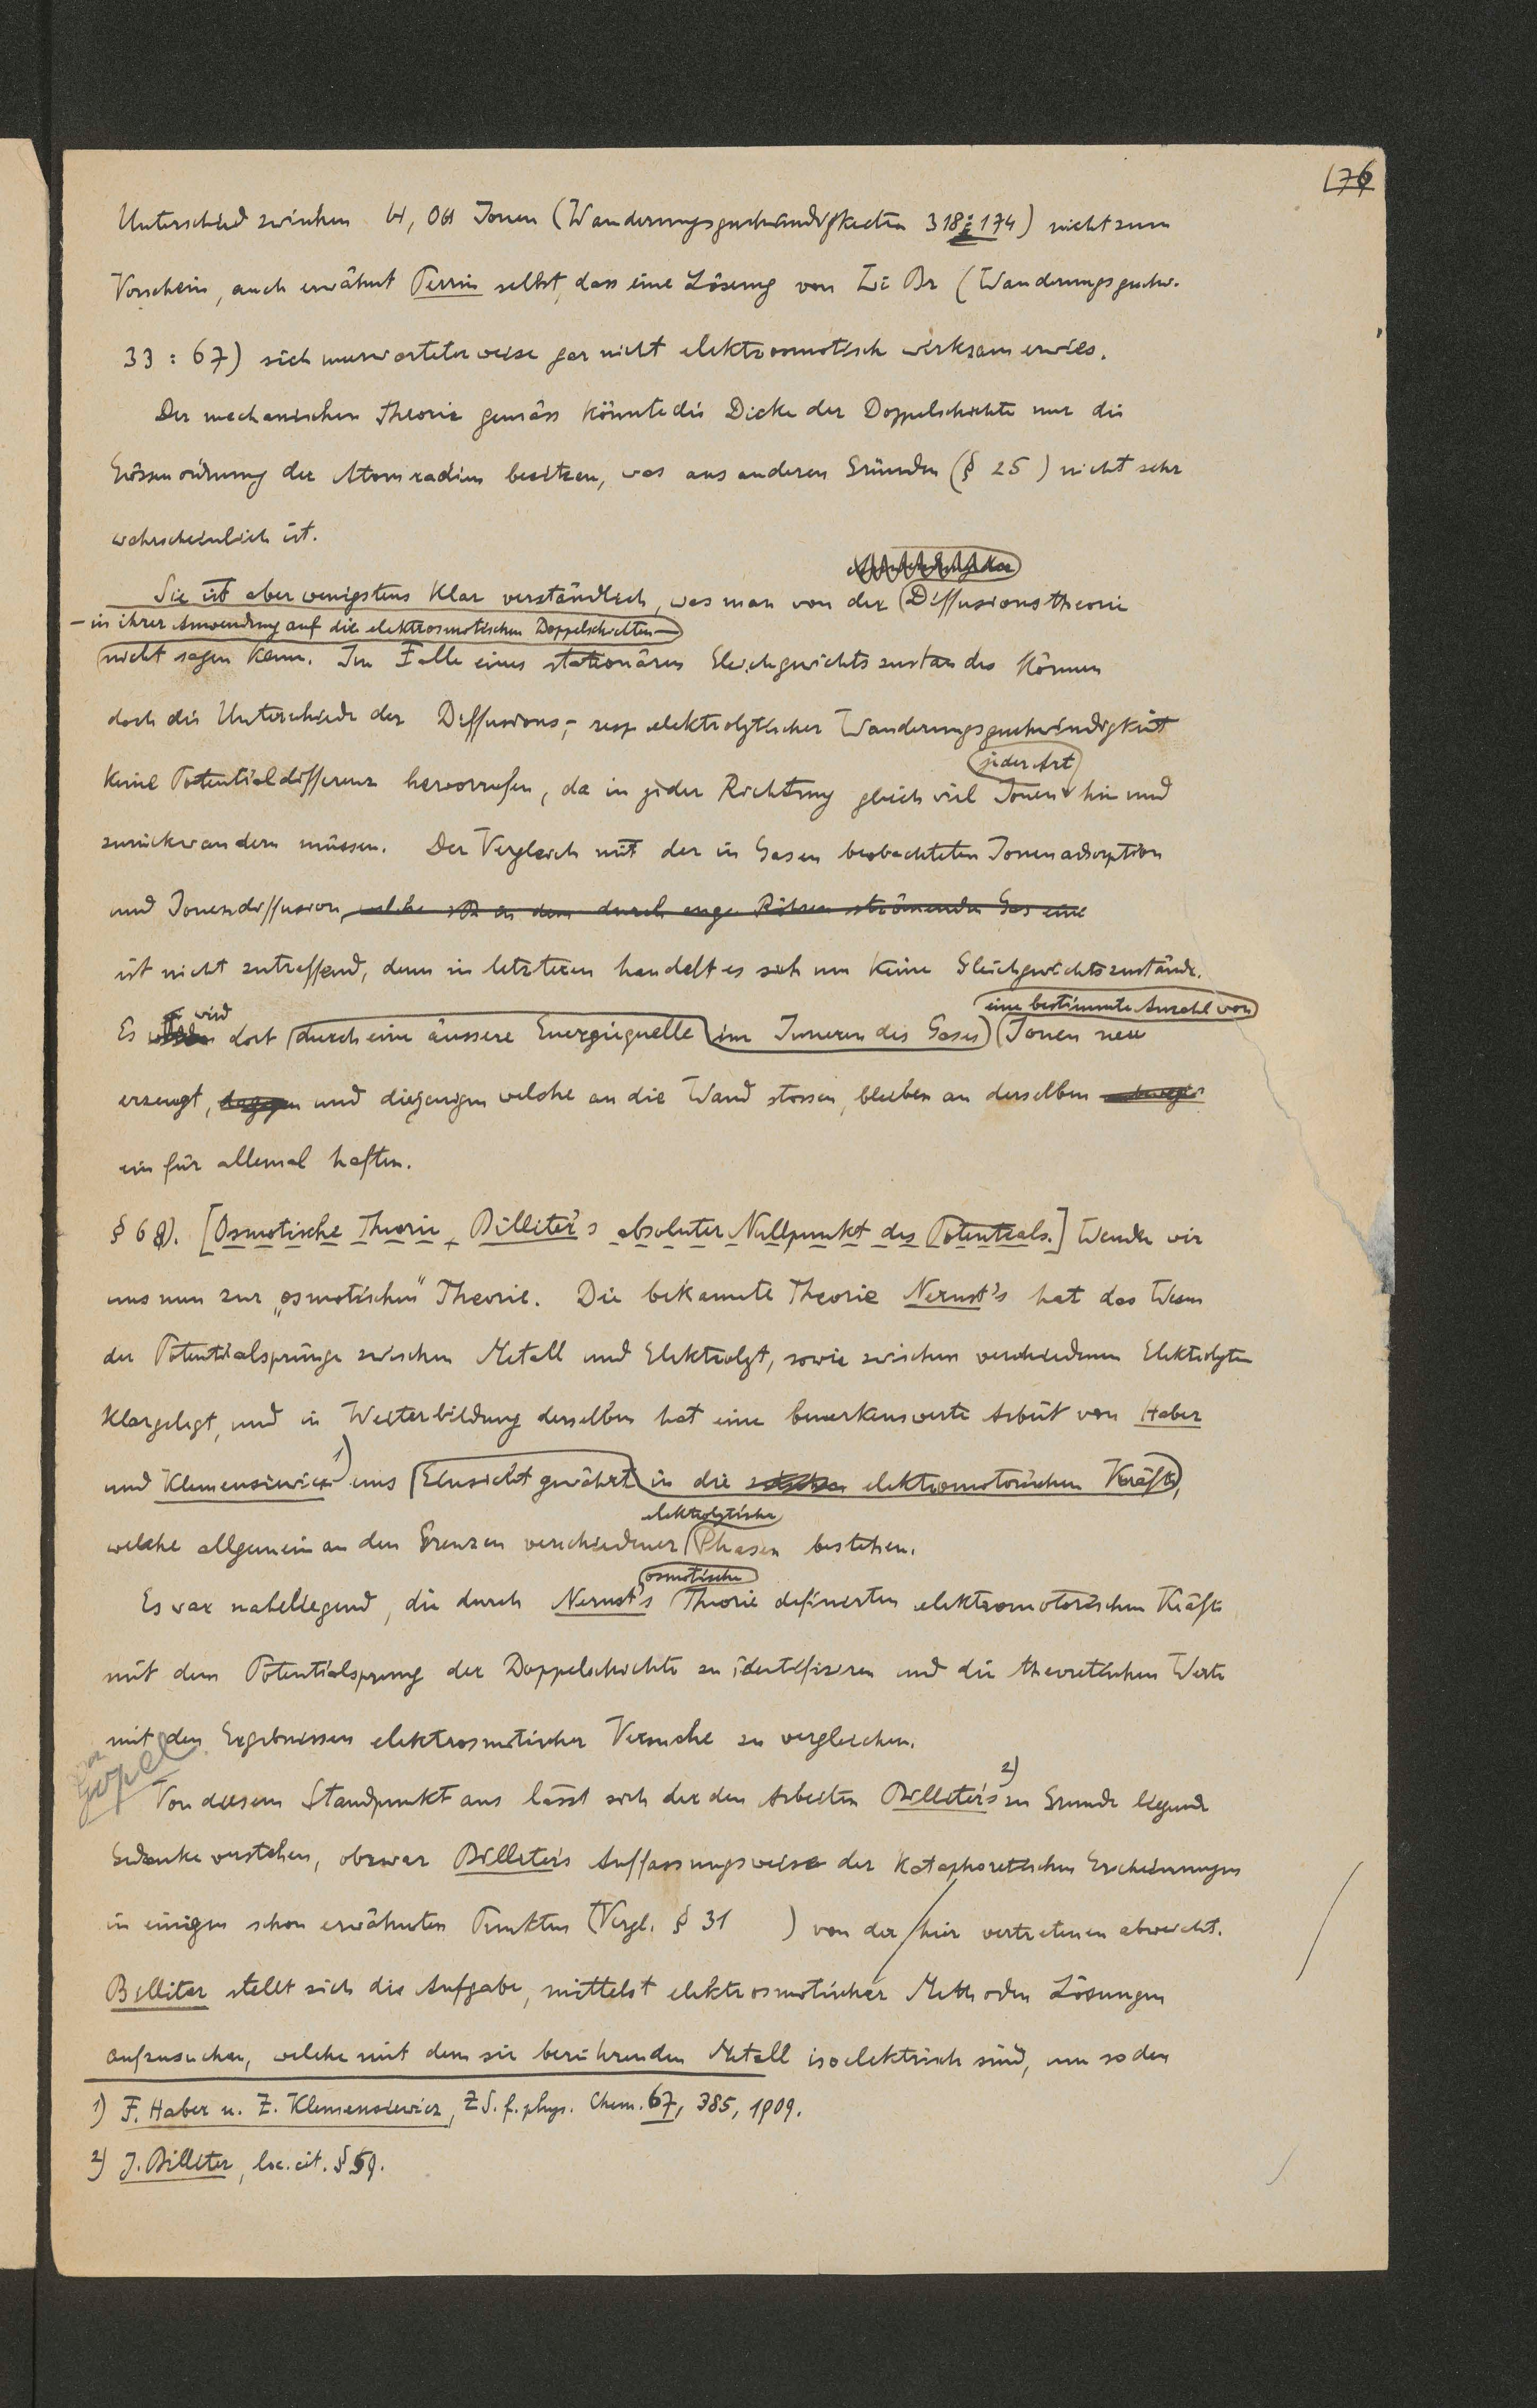 176
Unterschied zwischen H, OH Ionen (Wanderungsgeschwindigkeiten 318:174) nicht zum
Vorschein, auch erwähnt Perrin selbst, dass eine Lösung von Li Br (Wanderungsgeschw.
33 : 67) sich unerwarteterweise gar nicht elektrosmotisch wirksam erwies.
Der mechanischen Theorie gemäss könnte die Dicke der Doppelschichte nur die
Grössenordnung der Atomradien besitzen, was aus anderen Gründen (§ 25 ) nicht sehr
wahrscheinlich ist.
Sie ist aber wenigstens klar verständlich, was man von der Diffusionstheorie
– in ihrer Anwendung auf die elektrosmotischen Doppelschichten –
nicht sagen kann. Im Falle eines stationären Gleichgewichtszustandes können
doch die Unterschiede der Diffusions-, resp elektrolytischer Wanderungsgeschwindigkeit
jeder Art
keine Potentialdifferenz hervorrufen, da in jeder Richtung gleich viel Ionen hin und
zurückwandern müssen. Der Vergleich mit der in Gasen beobachteten Ionenadsorption
und Ionendiffusion, welche in dem durch enge Röhren strömenden Gas eine
ist nicht zutreffend, denn in letzteren handelt es sich um keine Gleichgewichtszustände.
wird eine bestimmte Anzahl von
Es dort durch eine äussere Energiequelle im Inneren des Gases Ionen neu
erzeugt, dagegen und diejenigen welche an die Wand stossen, bleiben an derselben
ein für allemal haften.
§ 68). [Osmotische Theorie, Billiter's absoluter Nullpunkt des Potentials.] Wenden wir
uns nun zur „osmotischen" Theorie. Die bekannte Theorie Nernst's hat das Wesen
der Potentialsprünge zwischen Metall und Elektrolyt, sowie zwischen verschiedenen Elektrolyten
klargelegt, und in Weiterbildung derselben hat eine bemerkenswerte Arbeit von Haber
und Klemensiewicz 1) uns Einsicht gewährt in die elektromotorischen Kräfte,
elektrolytische
welche allgemein an den Grenzen verschiedener Phasen bestehen.
osmotische
Es war naheliegend, die durch Nernst's Theorie definierten elektromotorischen Kräfte
mit dem Potentialsprung der Doppelschichte zu identifizieren und die theoretischen Werte
mit den Ergebnissen elektrosmotischer Versuche zu vergleichen.
Von diesem Standpunkt aus lässt sich der den Arbeiten Billiter's 2) zu Grunde liegende
Gedanke verstehen, obzwar Billiter's Auffassungsweise der kataphoretischen Erscheinungen
in einigen schon erwähnten Punkten (Vergl. § 31 ) von der hier vertretenen abweicht.
Billiter stellt sich die Aufgabe, mittelst elektrosmotischer Methoden Lösungen
aufzusuchen, welche mit dem sie berührenden Metall isoelektrisch sind, um so den
1) F. Haber u. Z. Klemensiewicz, ZS. f. phys. Chem. 67, 385, 1909.
2) J. Billiter, loc. cit. § 59.